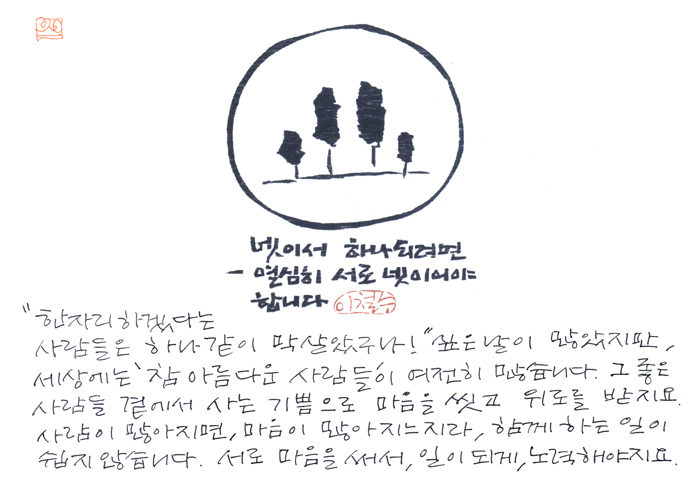 넷이서 하나되려면
- 열심히 서로 넷이어야
합니다 이철수
"한자리하겠다는
사람들은 하나같이 막살았구나!" 싶은날이 많았지만,
세상에는 참 아름다운 사람들이 여전히 많습니다. 그 좋은
사람들 곁에서 사는 기쁨으로 마음을 씻고 위로를 받지요.
사람이 많아지면, 마음이 많아지는지라, 함께 하는 일이
쉽지 않습니다. 서로 마음을 써서, 일이 되게, 노력해야지요.